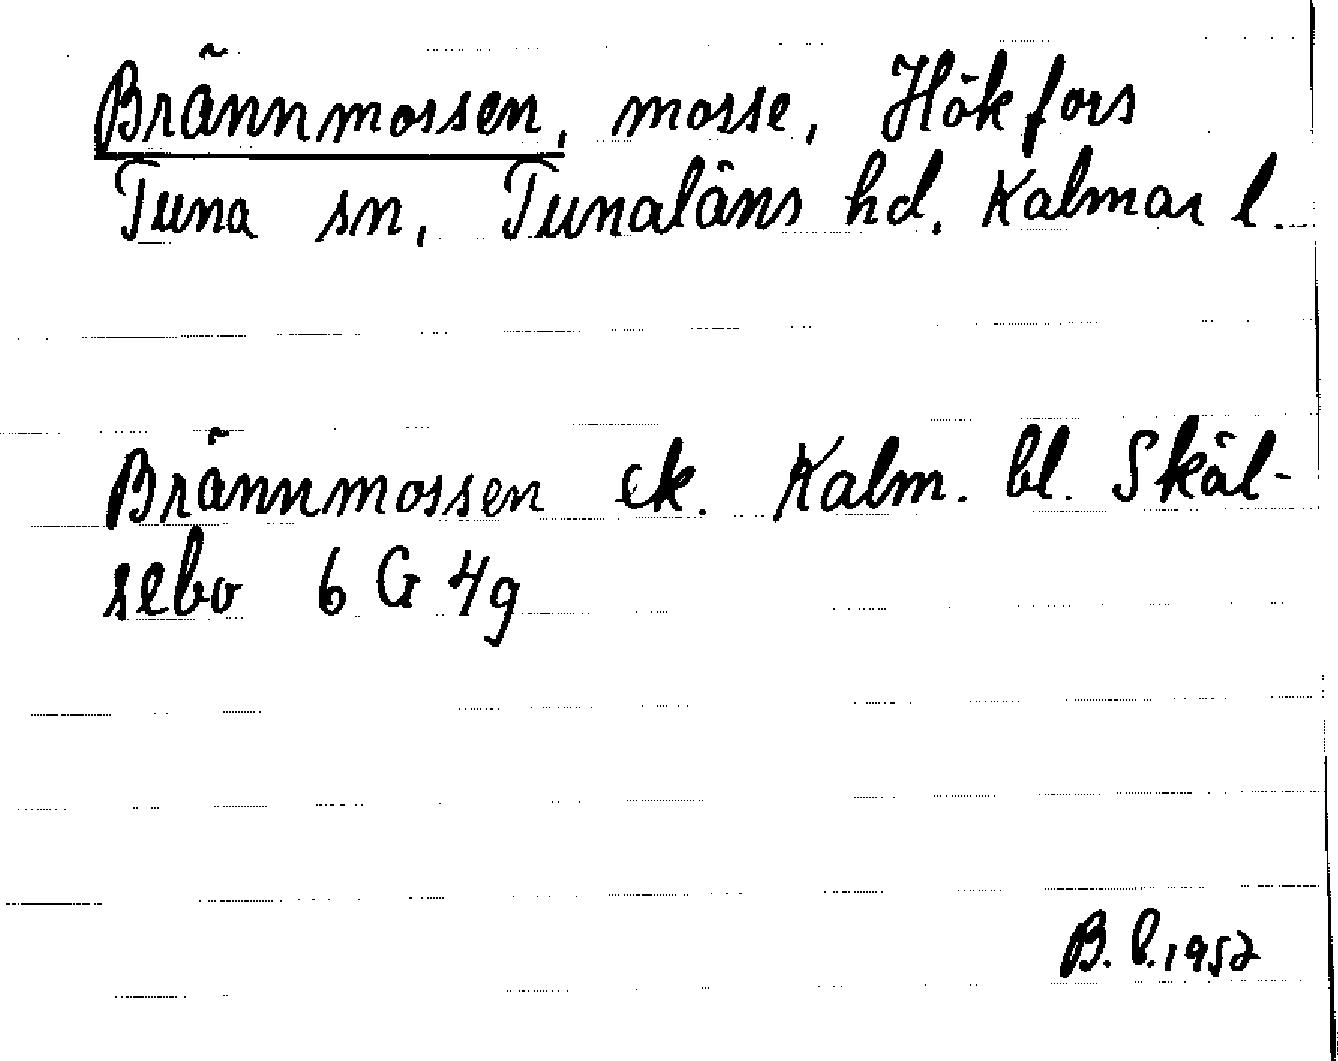 Brännmossen, mosse, Hökfors
Tuna sn, Tunaläns hd. Kalmar l.
Brännmossen ek. Kalm. bl. Skäl-
sebo 6 G 4g
B. l. 1952